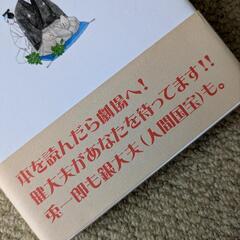 本を読んだら劇場へ！
健大夫があなたを待ってます!!
兎一郎も銀大夫（人間国宝）も。